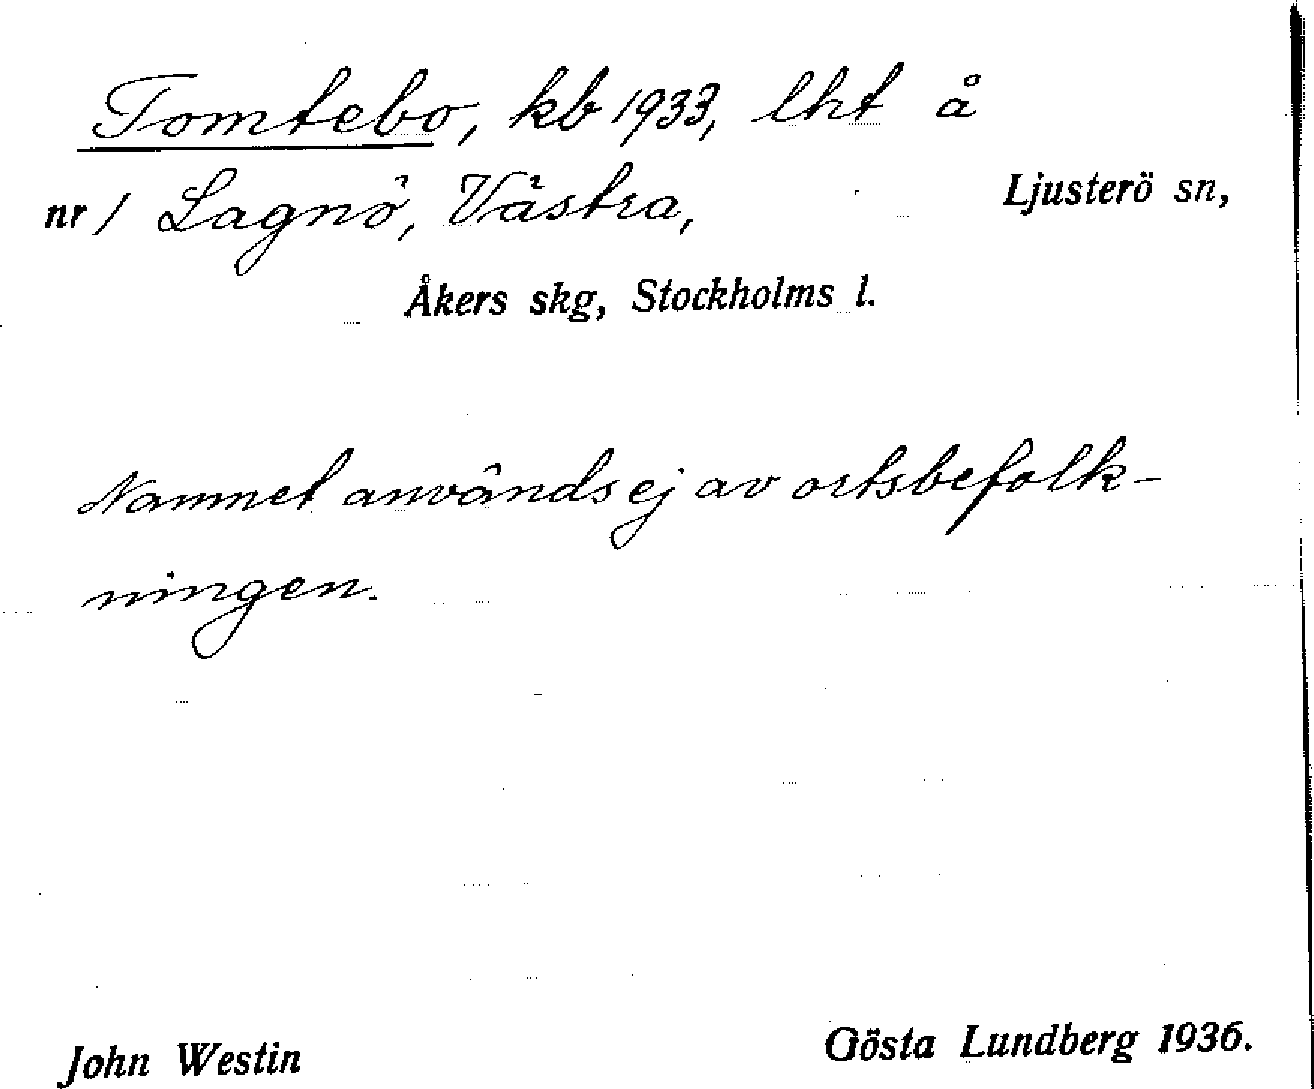 Tomtebo, kb 1933, lht å
nr 1 Lagnö, Västra, Ljusterö sn,
Åkers skg, Stockholms l.
Namnet används ej av ortsbefolk-
ningen.
John Westin Gösta Lundberg 1936.